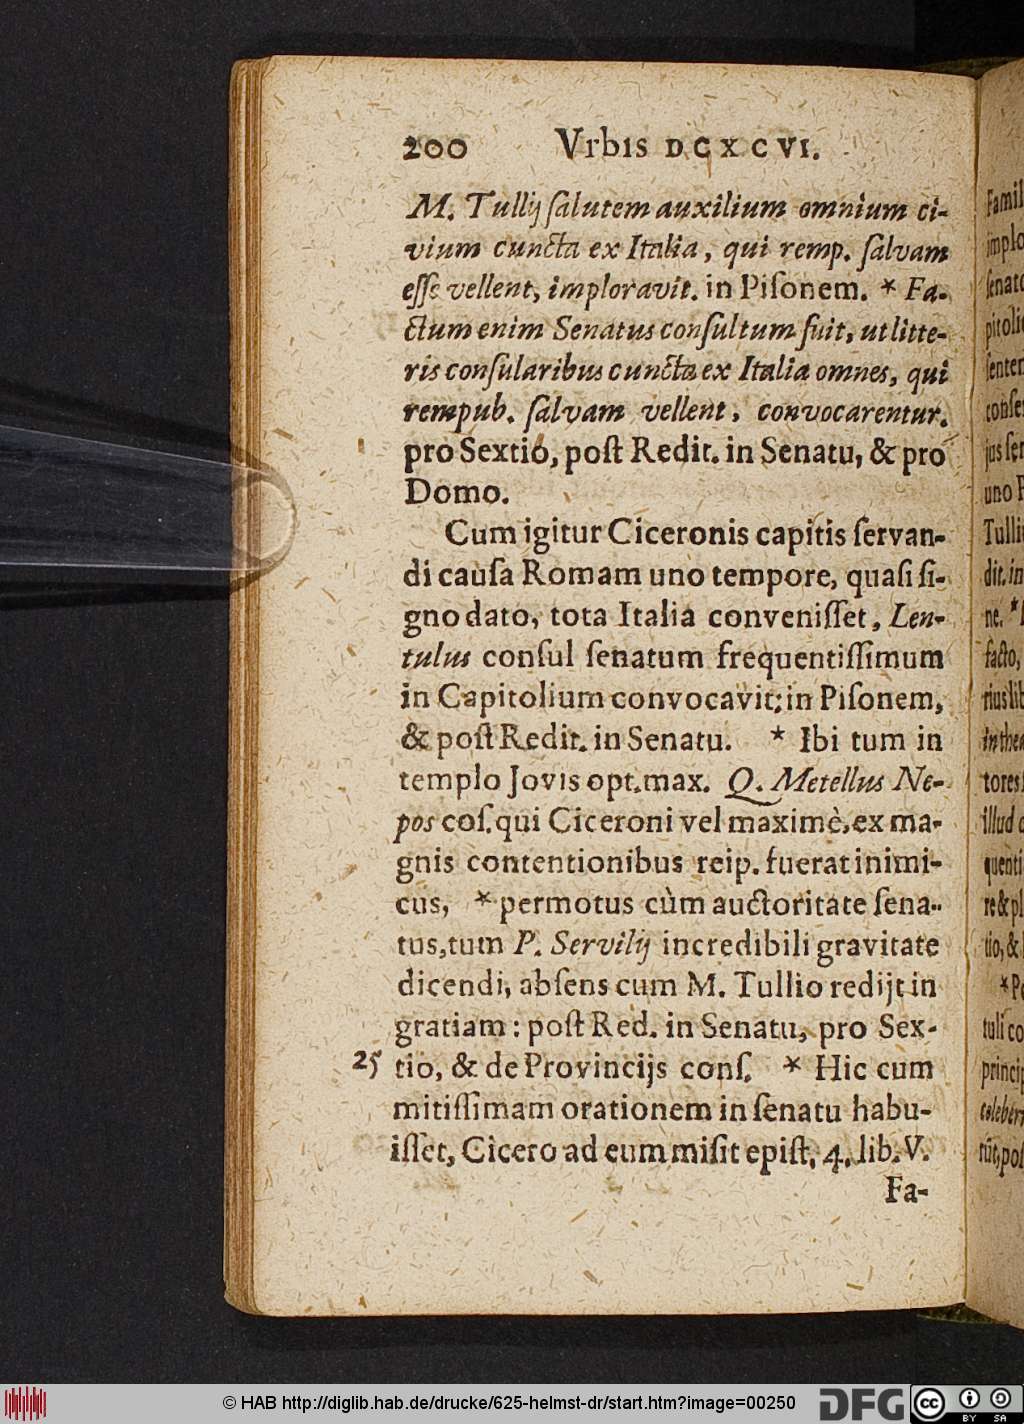 200 Vrbis DCXCVI.
M. Tullij ſalutem auxilium omnium ci-
vium cuncta ex Italia, qui remp. ſalvam
eſſe vellent, imploravit. in Piſonem. * Fa-
ctum enim Senatus conſultum fuit, ut litte-
ris conſularibus cuncta ex Italia omnes, qui
rempub. ſalvam vellent, convocarentur.
pro Sextio, poſt Redit. in Senatu, & pro
Domo.
Cum igitur Ciceronis capitis ſervan-
di cauſa Romam uno tempore, quaſi ſi-
gno dato, tota Italia conveniſſet, Len-
tulus conſul ſenatum frequentiſſimum
in Capitolium convocavit: in Piſonem,
& poſt Redit. in Senatu. * Ibi tum in
templo Jovis opt. max. Q. Metellus Ne-
pos coſ. qui Ciceroni vel maximè, ex ma-
gnis contentionibus reip. fuerat inimi-
cus, * permotus cùm auctoritate ſena-
tus, tum P. Servilij incredibili gravitate
dicendi, abſens cum M. Tullio redijt in
gratiam: poſt Red. in Senatu, pro Sex-
25 tio, & de Provincijs conſ. * Hic cum
mitiſſimam orationem in ſenatu habu-
iſſet, Cicero ad eum miſit epiſt. 4. lib. V.
Fa-
© HAB http://diglib.hab.de/drucke/625-helmst-dr/start.htm?image=00250
DFG
cc BY SA